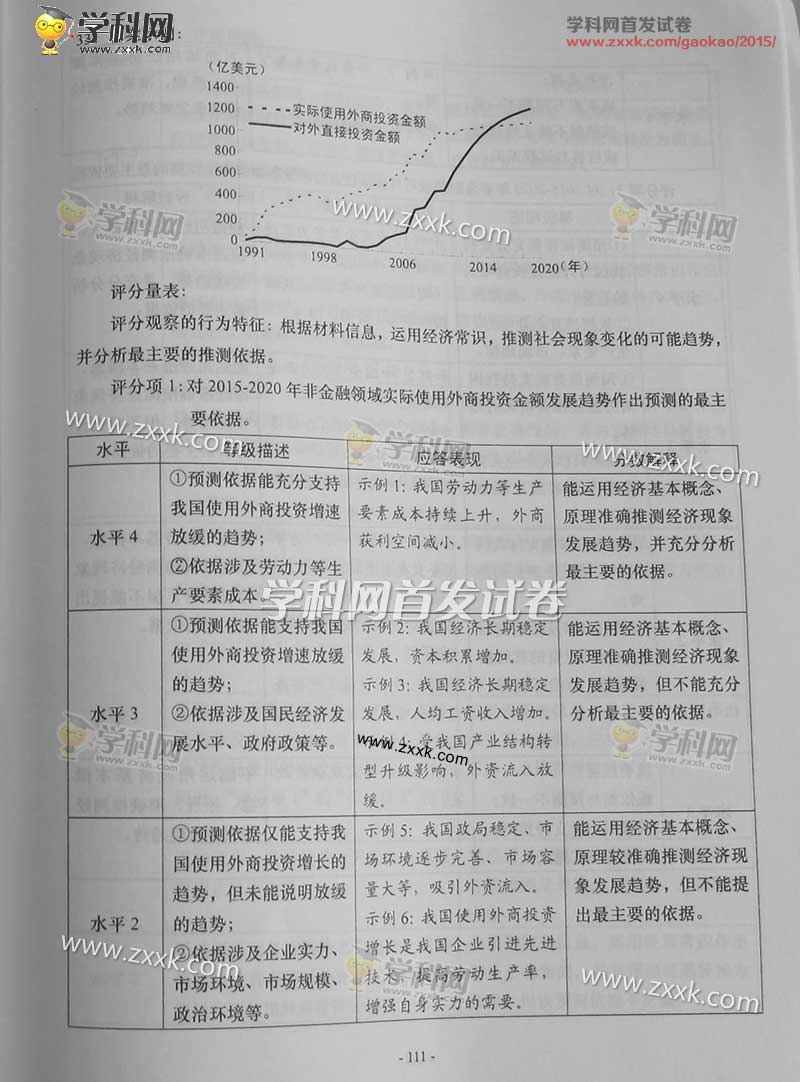 学科网
www.zxxk.com
学科网首发试卷
www.zxxk.com/gaokao/2015/
（亿美元）
1400
1200
1000
800
600
400
200
0
实际使用外商投资金额
对外直接投资金额
1991
1998
2006
2014
2020(年)
学科网
www.zxxk.com
学科网
评分量表：
评分观察的行为特征：根据材料信息，运用经济常识，推测社会现象变化的可能趋势，
并分析最主要的推测依据。
评分项 1：对 2015-2020 年非金融领域实际使用外商投资金额发展趋势作出预测的最主
要依据。
www.zxxk.com
学科网
www.zxxk.com
水平
等级描述
应答表现
分数解释
水平 4
①预测依据能充分支持
我国使用外商投资增速
放缓的趋势；
②依据涉及劳动力等生
产要素成本。
示例 1：我国劳动力等生产
要素成本持续上升，外商
获利空间减小。
能运用经济基本概念、
原理准确推测经济现象
发展趋势，并充分分析
最主要的依据。
学科网首发试卷
水平 3
①预测依据能支持我国
使用外商投资增速放缓
的趋势；
②依据涉及国民经济发
展水平、政府政策等。
示例 2：我国经济长期稳定
发展，资本积累增加。
示例 3：我国经济长期稳定
发展，人均工资收入增加。
示例 4：受我国产业结构转
型升级影响，外资流入放
缓。
能运用经济基本概念、
原理准确推测经济现象
发展趋势，但不能充分
分析最主要的依据。
学科网
www.zxxk.com
学科网
水平 2
①预测依据仅能支持我
国使用外商投资增长的
趋势，但未能说明放缓
的趋势；
②依据涉及企业实力、
市场环境、市场规模、
政治环境等。
示例 5：我国政局稳定、市
场环境逐步完善、市场容
量大等，吸引外资流入。
示例 6：我国使用外商投资
增长是我国企业引进先进
技术，提高劳动生产率，
增强自身实力的需要。
能运用经济基本概念、
原理较准确推测经济现
象发展趋势，但不能提
出最主要的依据。
www.zxxk.com
学科网
www.zxxk.com
- 111 -